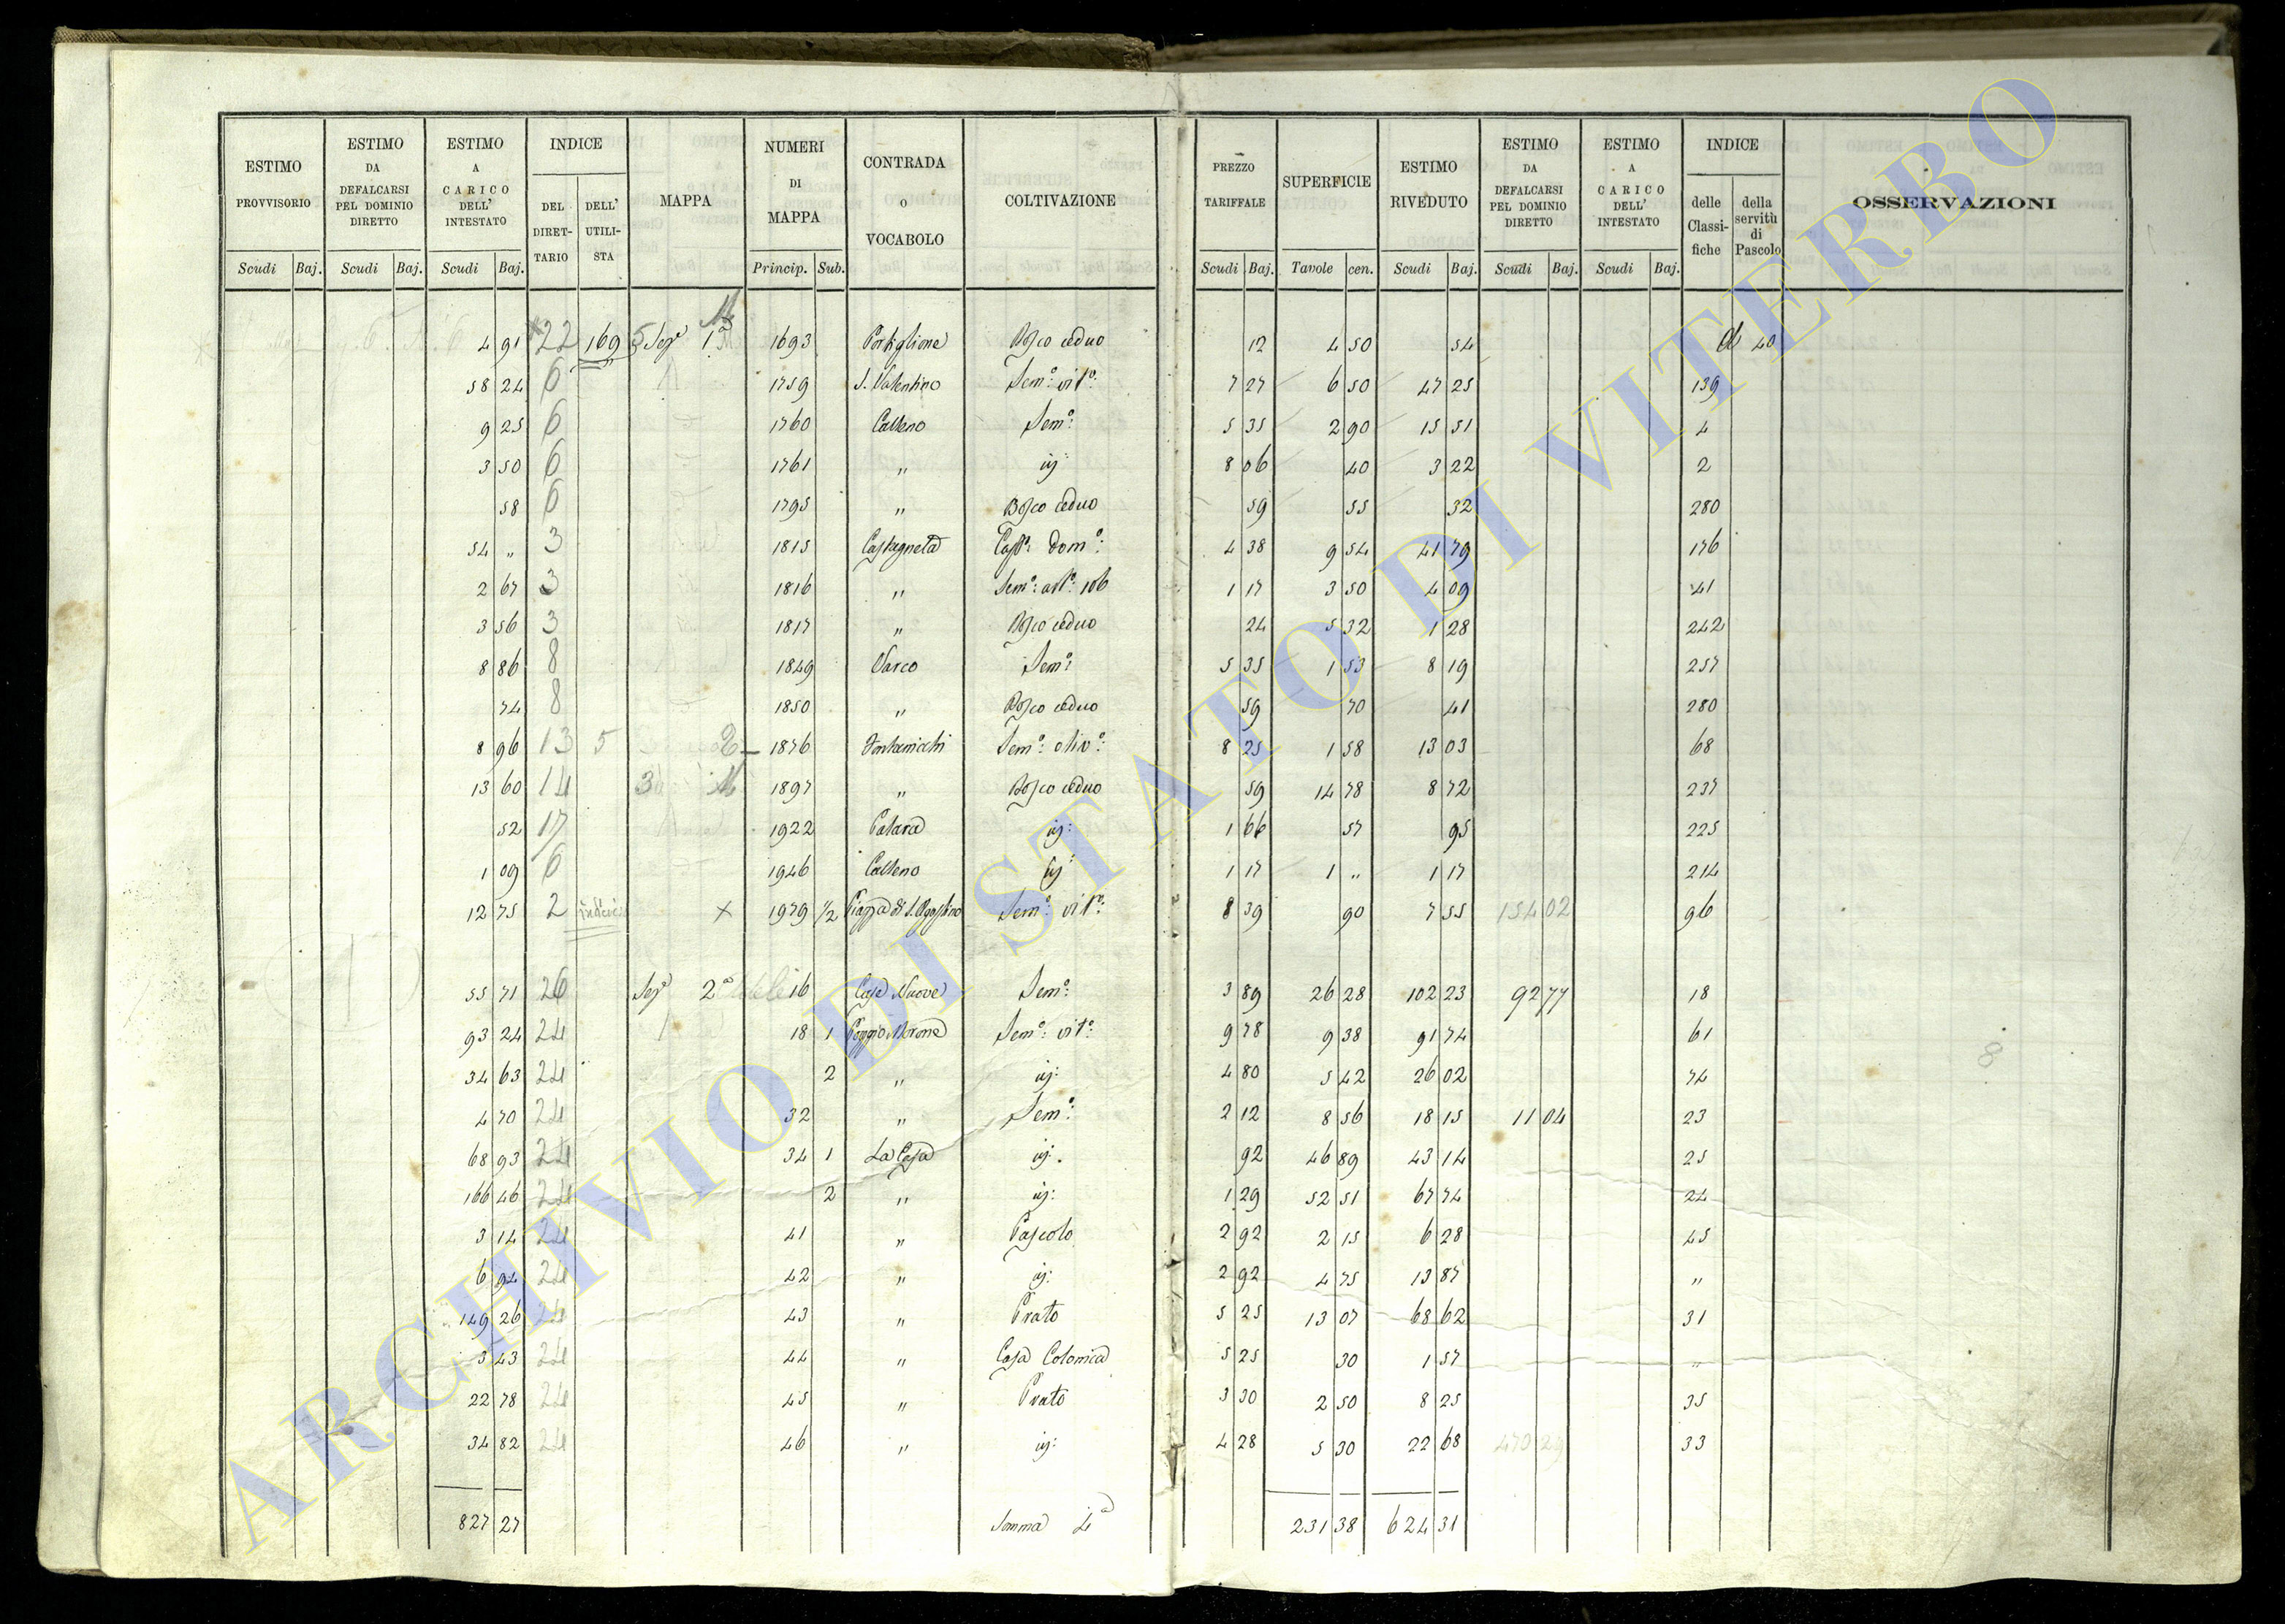 ESTIMO PROVVISORIO | ESTIMO DA DEFALCARSI PEL DOMINIO DIRETTO | ESTIMO A CARICO DELL' INTESTATO | INDICE | MAPPA | NUMERI DI MAPPA | CONTRADA o VOCABOLO | COLTIVAZIONE | PREZZO TARIFFALE | SUPERFICIE | ESTIMO RIVEDUTO | ESTIMO DA DEFALCARSI PEL DOMINIO DIRETTO | ESTIMO A CARICO DELL' INTESTATO | INDICE | OSSERVAZIONI
DEL DIRET-TARIO | DELL' UTILI-STA | delle Classi-fiche | della servitù di Pascolo
Scudi Baj. | Scudi Baj. | Scudi Baj. | Princip. Sub. | Scudi Baj. | Tavole cen. | Scudi Baj. | Scudi Baj. | Scudi Baj.
4 91 22 169 Sez.e 1a 1693 Portiglione Bosco ceduo 12 4 50 54 40
58 24 6 1759 S. Valentino Sem.o vit.o 7 27 6 50 47 25 139
9 25 6 1760 Calleno Sem.o 5 35 2 90 15 51 4
3 50 6 1761 " iɡ: 8 06 40 3 22 2
58 6 1795 " Bosco ceduo 59 55 32 280
54 " 3 1815 Castagneta Cast. Dom.o 4 38 9 54 41 79 176
2 67 3 1816 " Sem.o 1 17 3 50 4 09 41
3 56 3 1817 " Bosco ceduo 24 5 32 1 28 242
8 86 8 1849 Varco Sem.o 5 35 1 53 8 19 257
74 8 1850 " Bosco ceduo 59 70 41 280
8 96 13 5 1876 Sem.o oliv.o 8 25 1 58 13 03 68
13 60 14 3 M 1897 " Bosco ceduo 59 14 78 8 72 237
52 17 1922 Palara id: 1 66 57 95 225
1 09 6 1946 Calleno id 1 17 1 " 1 17 214
12 75 2 indivi X 1979 1/2 Piazza di S. Agostino Sem.o vit.o 8 39 90 7 55 154 02 96
55 71 26 Sez.e 2a 16 Casa Nuova Sem.o 3 89 26 28 102 23 92 77 18
93 24 24 18 1 Poggio Morone Sem.o vit.o 9 78 9 38 91 74 61
34 63 24 2 " id: 4 80 5 42 26 02 74
4 70 24 32 " Sem.o 2 12 8 56 18 15 11 04 23
68 93 24 34 1 La Casa id. 92 46 89 43 14 25
166 46 24 2 " id: 1 29 52 51 67 74 24
3 14 24 41 " Pascolo 2 92 2 15 6 28 45
6 94 24 42 " id: 2 92 4 75 13 87 "
149 26 24 43 " Prato 5 25 13 07 68 62 31
3 43 24 44 " Casa Colonica 5 25 30 1 57 "
22 78 24 45 " Prato 3 30 2 50 8 25 35
34 82 24 46 " id: 4 28 5 30 22 68 33
827 27 Somma 4a 231 38 624 31
8
ARCHIVIO DI STATO DI VITERBO